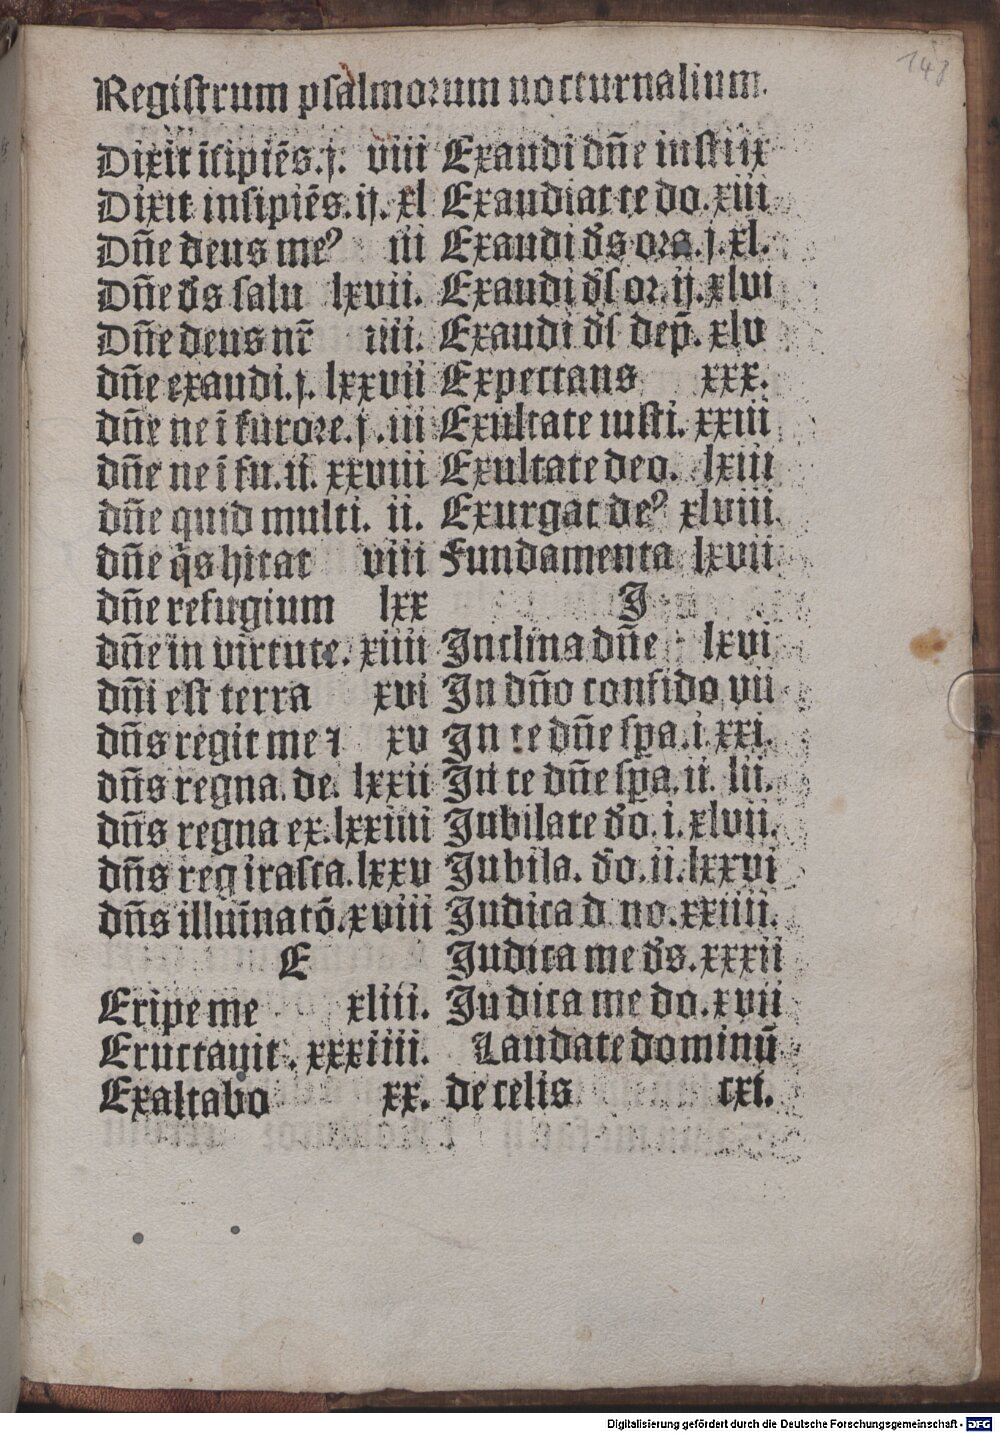 148
Registrum psalmorum nocturnalium.
Dixit īsipiēs.j. viii
Dixit insipiēs.ij. xl
Dñe deus meꝰ iii
Dñe d̄s salu lxvii.
Dñe deus nr̄ iiii.
dñe exaudi.j. lxxvii
dñe ne ī furore.j.iii
dñe ne ī fu.ii. xxviii
dñe quid multi. ii.
dñe q̄s hitat viii
dñe refugium lxx
dñe in virtute. xiiii
dñi est terra xvi
dñs regit me ⁊ xv
dñs regna. de. lxxii
dñs regna ex.lxxiiii
dñs reg irasca.lxxv
dñs illuīnatō.xviii
E
Eripe me xliii.
Eructauit. xxxiiii.
Exaltabo xx.
Exaudi dñe iusti ix
Exaudiat te do.xiii
Exaudi d̄s ora.j.xl.
Exaudi d̄s or.ij.xlvi
Exaudi d̄s dep̄. xlv
Expectans xxx.
Exultate iusti. xxiii
Exultate deo. lxiii
Exurgat deꝰ xlviii.
Fundamenta lxvii
I
Inclina dñe lxvi
In dño confido vii
In te dñe spa.i.xxi.
In te dñe spa.ii. lii.
Iubilate d̄o.i.xlvii.
Iubila. d̄o.ii.lxxvi
Iudica d no.xxiiii.
Iudica me d̄s.xxxii
Iudica me do.xvii
Laudate dominū
de celis cxi.
Digitalisierung gefördert durch die Deutsche Forschungsgemeinschaft - DFG